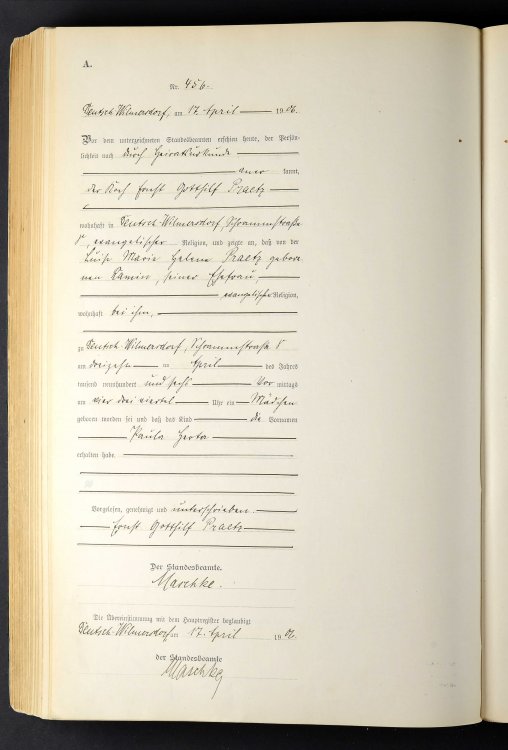 A.
Nr. 456.
Deutsch Wilmersdorf, am 17. April 1906.
Vor dem unterzeichneten Standesbeamten erschien heute, der Persön-
lichkeit nach durch Heiratsurkunde
aner kannt,
der Koch Ernst Gotthilf Praetz
wohnhaft in Deutsch Wilmersdorf, Schrammstraße
8, evangelischer Religion, und zeigte an, daß von der
Luise Marie Helene Praetz gebore
nen Ramin, seiner Ehefrau,
evangelischer Religion,
wohnhaft bei ihm,
zu Deutsch Wilmersdorf, Schrammstraße 8
am dreizehn ten April des Jahres
tausend neunhundert und sechs Vor mittags
um vier drei viertel Uhr ein Mädchen
geboren worden sei und daß das Kind die Vornamen
Paula Herta
erhalten habe.
Vorgelesen, genehmigt und unterschrieben.
Ernst Gotthilf Praetz
Der Standesbeamte.
Maschke.
Die Übereinstimmung mit dem Hauptregister beglaubigt
Deutsch Wilmersdorf am 17. April 1906.
der Standesbeamte
Maschke